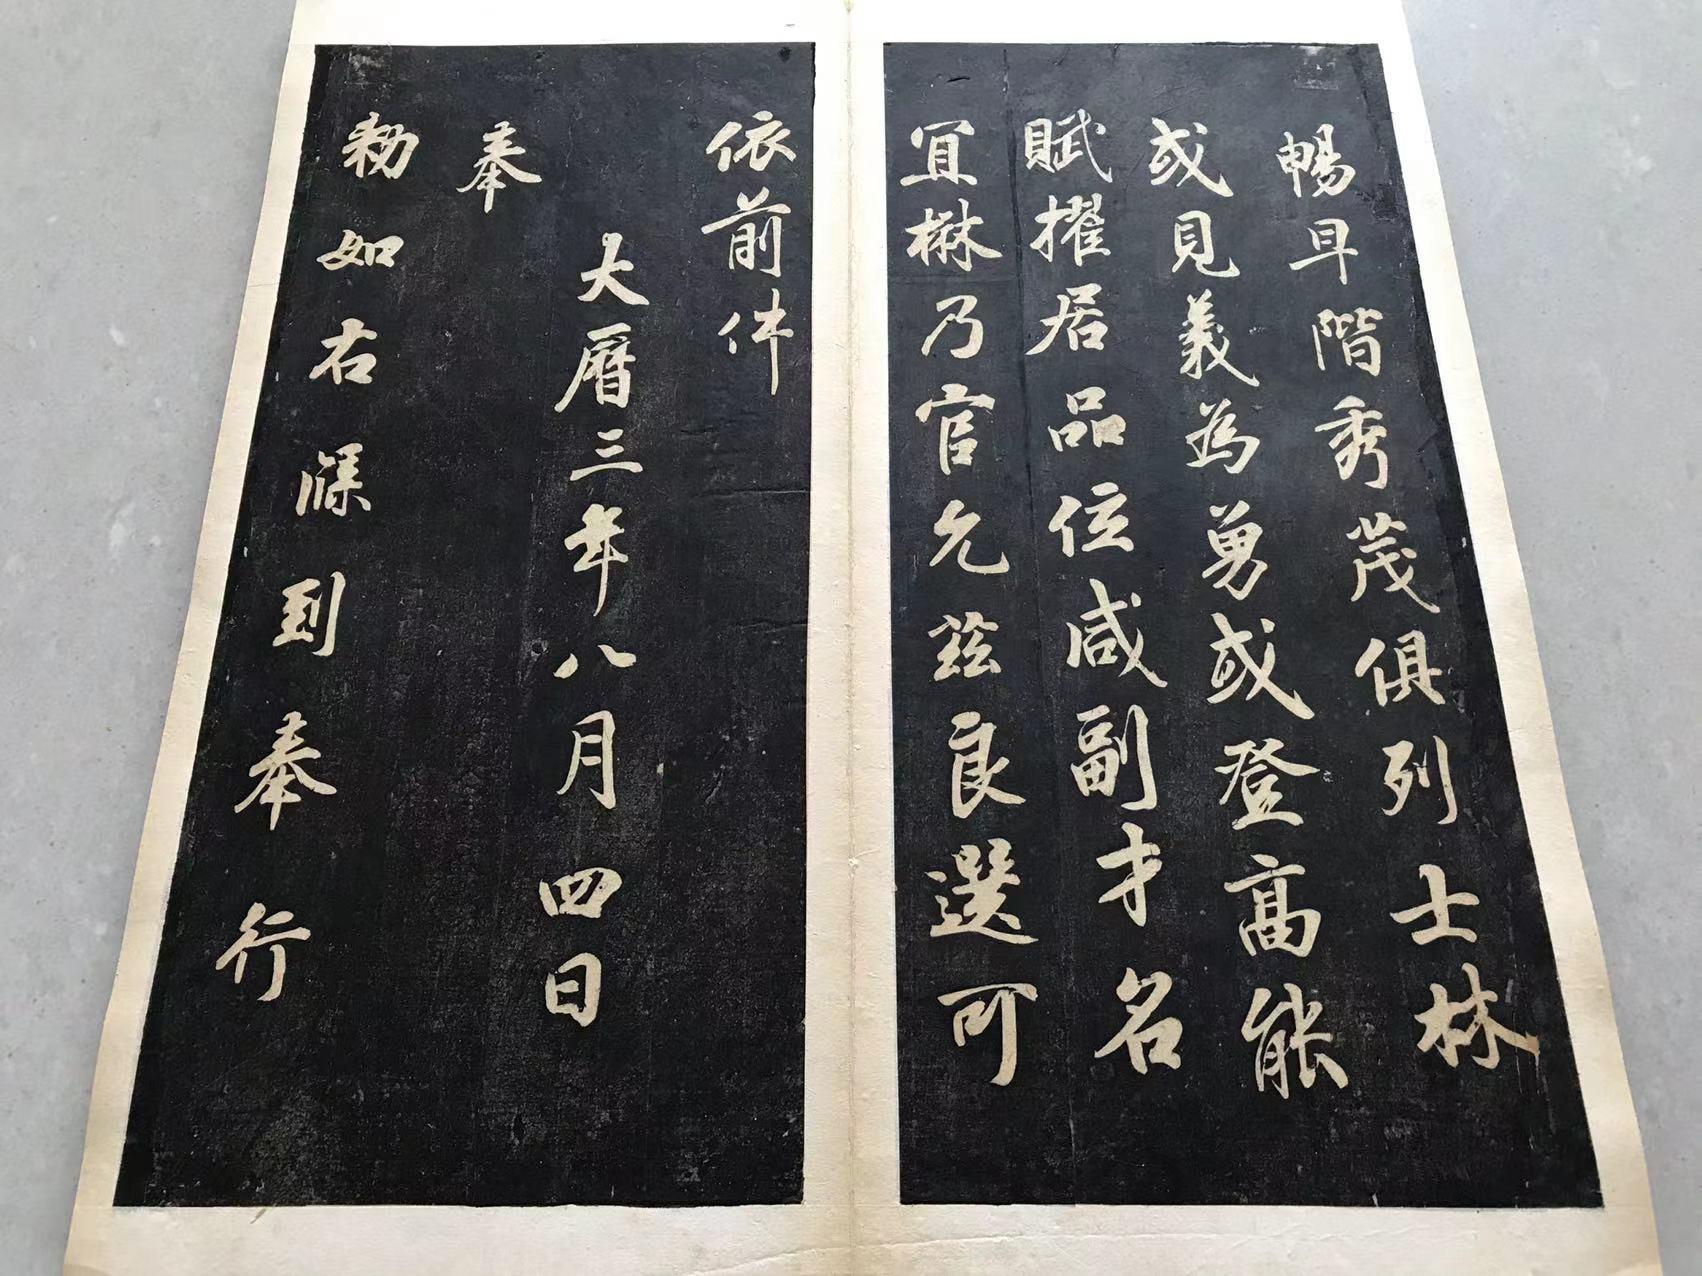 暢早階秀茂俱列士林
或見義為勇或登高能
賦擢居品位咸副才名
宜楙乃官允茲良選可
依前件
大曆三年八月四日
奉
勅如右牒到奉行